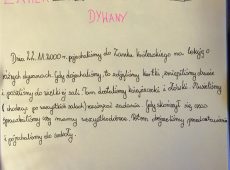 DYWANY
Dnia 22.11.2000 r. pojechaliśmy do Zamku Królewskiego na lekcję o
dywanach. Gdy dojechaliśmy, to zdjęliśmy kurtki,
i poszliśmy do wielkiej sali. Tam dostaliśmy książeczki i ołówki. Musieliśmy
(chodząc po wszystkich salach) rozwiązać zadania. Gdy skończył się czas
sprawdziliśmy czy mamy wszystko dobrze. Potem
i pojechaliśmy do szkoły.